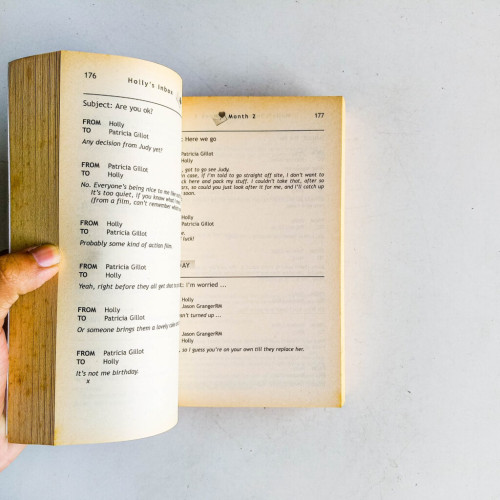 176
Holly's Inbox
Subject: Are you ok?
FROM Holly
TO Patricia Gillot
Any decision from Judy yet?
FROM Patricia Gillot
TO Holly
No. Everyone's being nice to me
It's too quiet, if you know what
(from a film, can't remember
FROM Holly
TO Patricia Gillot
Probably some kind of action film.
FROM Patricia Gillot
TO Holly
Yeah, right before they all get
FROM Holly
TO Patricia Gillot
Or someone brings them a lovely
FROM Patricia Gillot
TO Holly
It's not me birthday.
x
Month 2
177
Here we go
Patricia Gillot
Holly
got to go see Judy.
case, if I'm told to go straight off site, I don't want to
here and pack my stuff. I couldn't take that, after so
so could you just look after it for me, and I'll catch up
soon.
Holly
Patricia Gillot
luck!
I'm worried ...
Holly
Jason Granger
turned up ...
Jason Granger
Holly
so I guess you're on your own till they replace her.